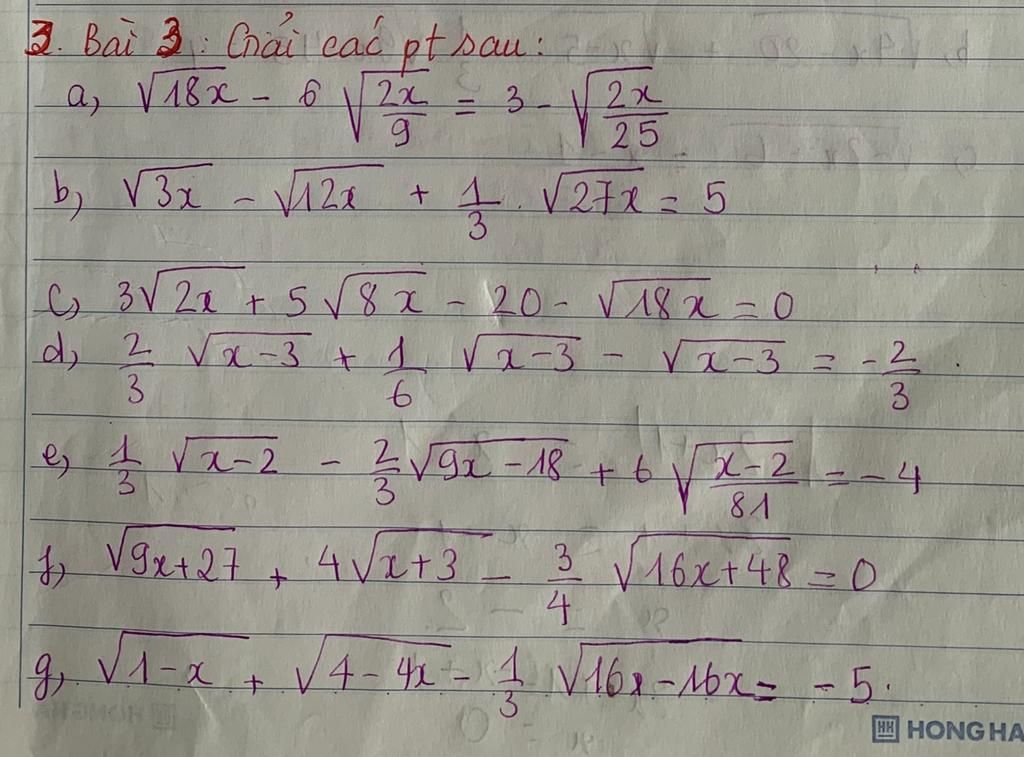 3. Bài 3: Giải các pt sau:
a, √18x - 6 √(2x/9) = 3 - √(2x/25)
b, √3x - √12x + 1/3 . √27x = 5
c, 3√2x + 5√8x - 20 - √18x = 0
d, 2/3 √x-3 + 1/6 √x-3 - √x-3 = -2/3 .
e, 1/3 √x-2 - 2/3 √9x-18 + 6 √(x-2/81) = -4
f, √9x+27 + 4√x+3 - 3/4 √16x+48 = 0
g, √1-x + √4-4x - 1/3 √16x-16x = -5.
HH HONG HA